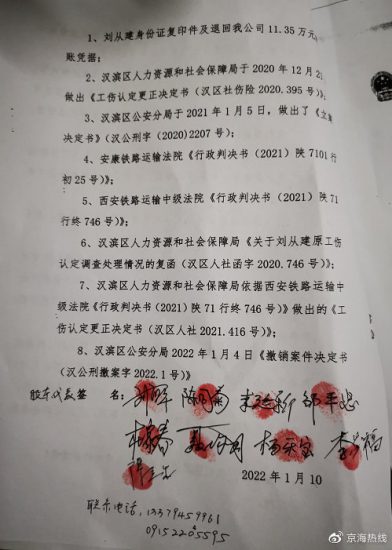 1、刘从建身份证复印件及退回我公司 11.35 万元
账凭据；
2、汉滨区人力资源和社会保障局于 2020 年 12 月 2
做出《工伤认定更正决定书（汉区社伤险 2020.395 号）》；
3、汉滨区公安分局于 2021 年 1 月 5 日，做出了《立案
决定书》（汉公刑字（2020）2207 号）；
4、安康铁路运输法院《行政判决书（2021）陕 7101 行
初 25 号）》；
5、西安铁路运输中级法院《行政判决书（2021）陕 71
行终 746 号）》；
6、汉滨区人力资源和社会保障局《关于刘从建原工伤
认定调查处理情况的复函（汉区人社函字 2020.746 号）》；
7、汉滨区人力资源和社会保障局依据西安铁路运输中
级法院《行政判决书（2021）陕 71 行终 746 号）》做出的《工
伤认定更正决定书（汉区人社 2021.416 号）》；
8、汉滨区公安分局 2022 年 1 月 4 日《撤销案件决定书
（汉公刑撤案字 2022.1 号）》
股东代表签 名：
2022 年 1 月 10
联系电话：13379459961
09152205595
@京海热线